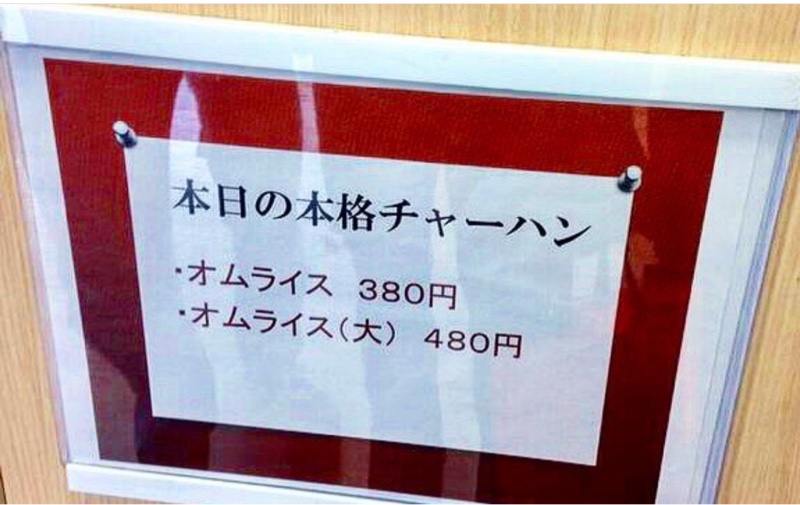 本日の本格チャーハン
・オムライス 380円
・オムライス(大) 480円